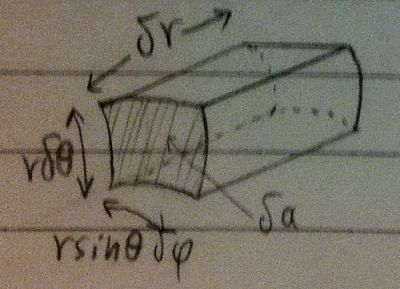 δr
rδθ
δa
rsinθ δφ